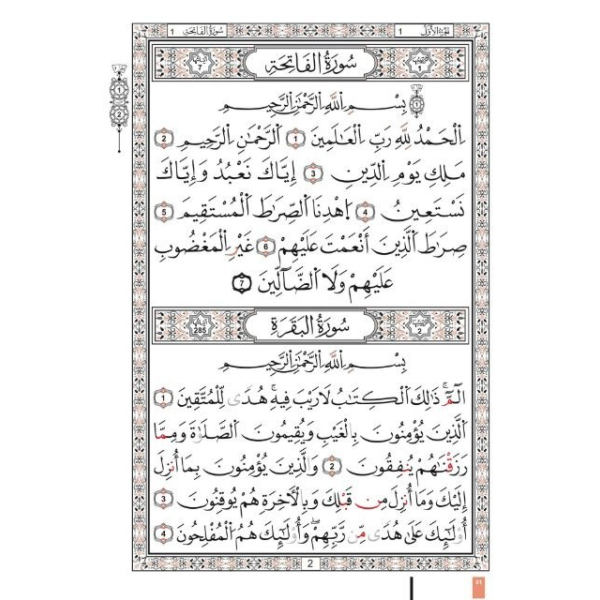 الجزء الأول 1 سورة الفاتحة 1
1 سُورَةُ الْفَاتِحَةِ 7
بِسْمِ اِللَّهِ اِلرَّحْمَٰنِ اِلرَّحِيمِ
اِلْحَمْدُ لِلَّهِ رَبِّ اِلْعَٰلَمِينَ 1 اَلرَّحْمَٰنِ اِلرَّحِيمِ 2
مَلِكِ يَوْمِ اِلدِّينِ 3 إِيَّاكَ نَعْبُدُ وَإِيَّاكَ
نَسْتَعِينُ 4 اِهْدِنَا اَلصِّرَٰطَ اَلْمُسْتَقِيمَ 5
صِرَٰطَ اَلذِينَ أَنْعَمْتَ عَلَيْهِمْ 6 غَيْرِ اِلْمَغْضُوبِ
عَلَيْهِمْ وَلَا اَلضَّآلِّينَ 7
2 سُورَةُ الْبَقَرَةِ 285
بِسْمِ اِللَّهِ اِلرَّحْمَٰنِ اِلرَّحِيمِ
أَلَٓمِّٓۖ ذَٰلِكَ اَلْكِتَٰبُ لَا رَيْبَ فِيهِۖ هُدىً لِّلْمُتَّقِينَ 1
اَلذِينَ يُؤْمِنُونَ بِالْغَيْبِ وَيُقِيمُونَ اَلصَّلَوٰةَ وَمِمَّا
رَزَقْنَٰهُمْ يُنفِقُونَ 2 وَالذِينَ يُؤْمِنُونَ بِمَا أُنزِلَ
إِلَيْكَ وَمَا أُنزِلَ مِن قَبْلِكَ وَبِالْأَخِرَةِ هُمْ يُوقِنُونَ 3
أُوْلَٰٓئِكَ عَلَىٰ هُدىً مِّن رَّبِّهِمْۖ وَأُوْلَٰٓئِكَ هُمُ اُلْمُفْلِحُونَ 4
2